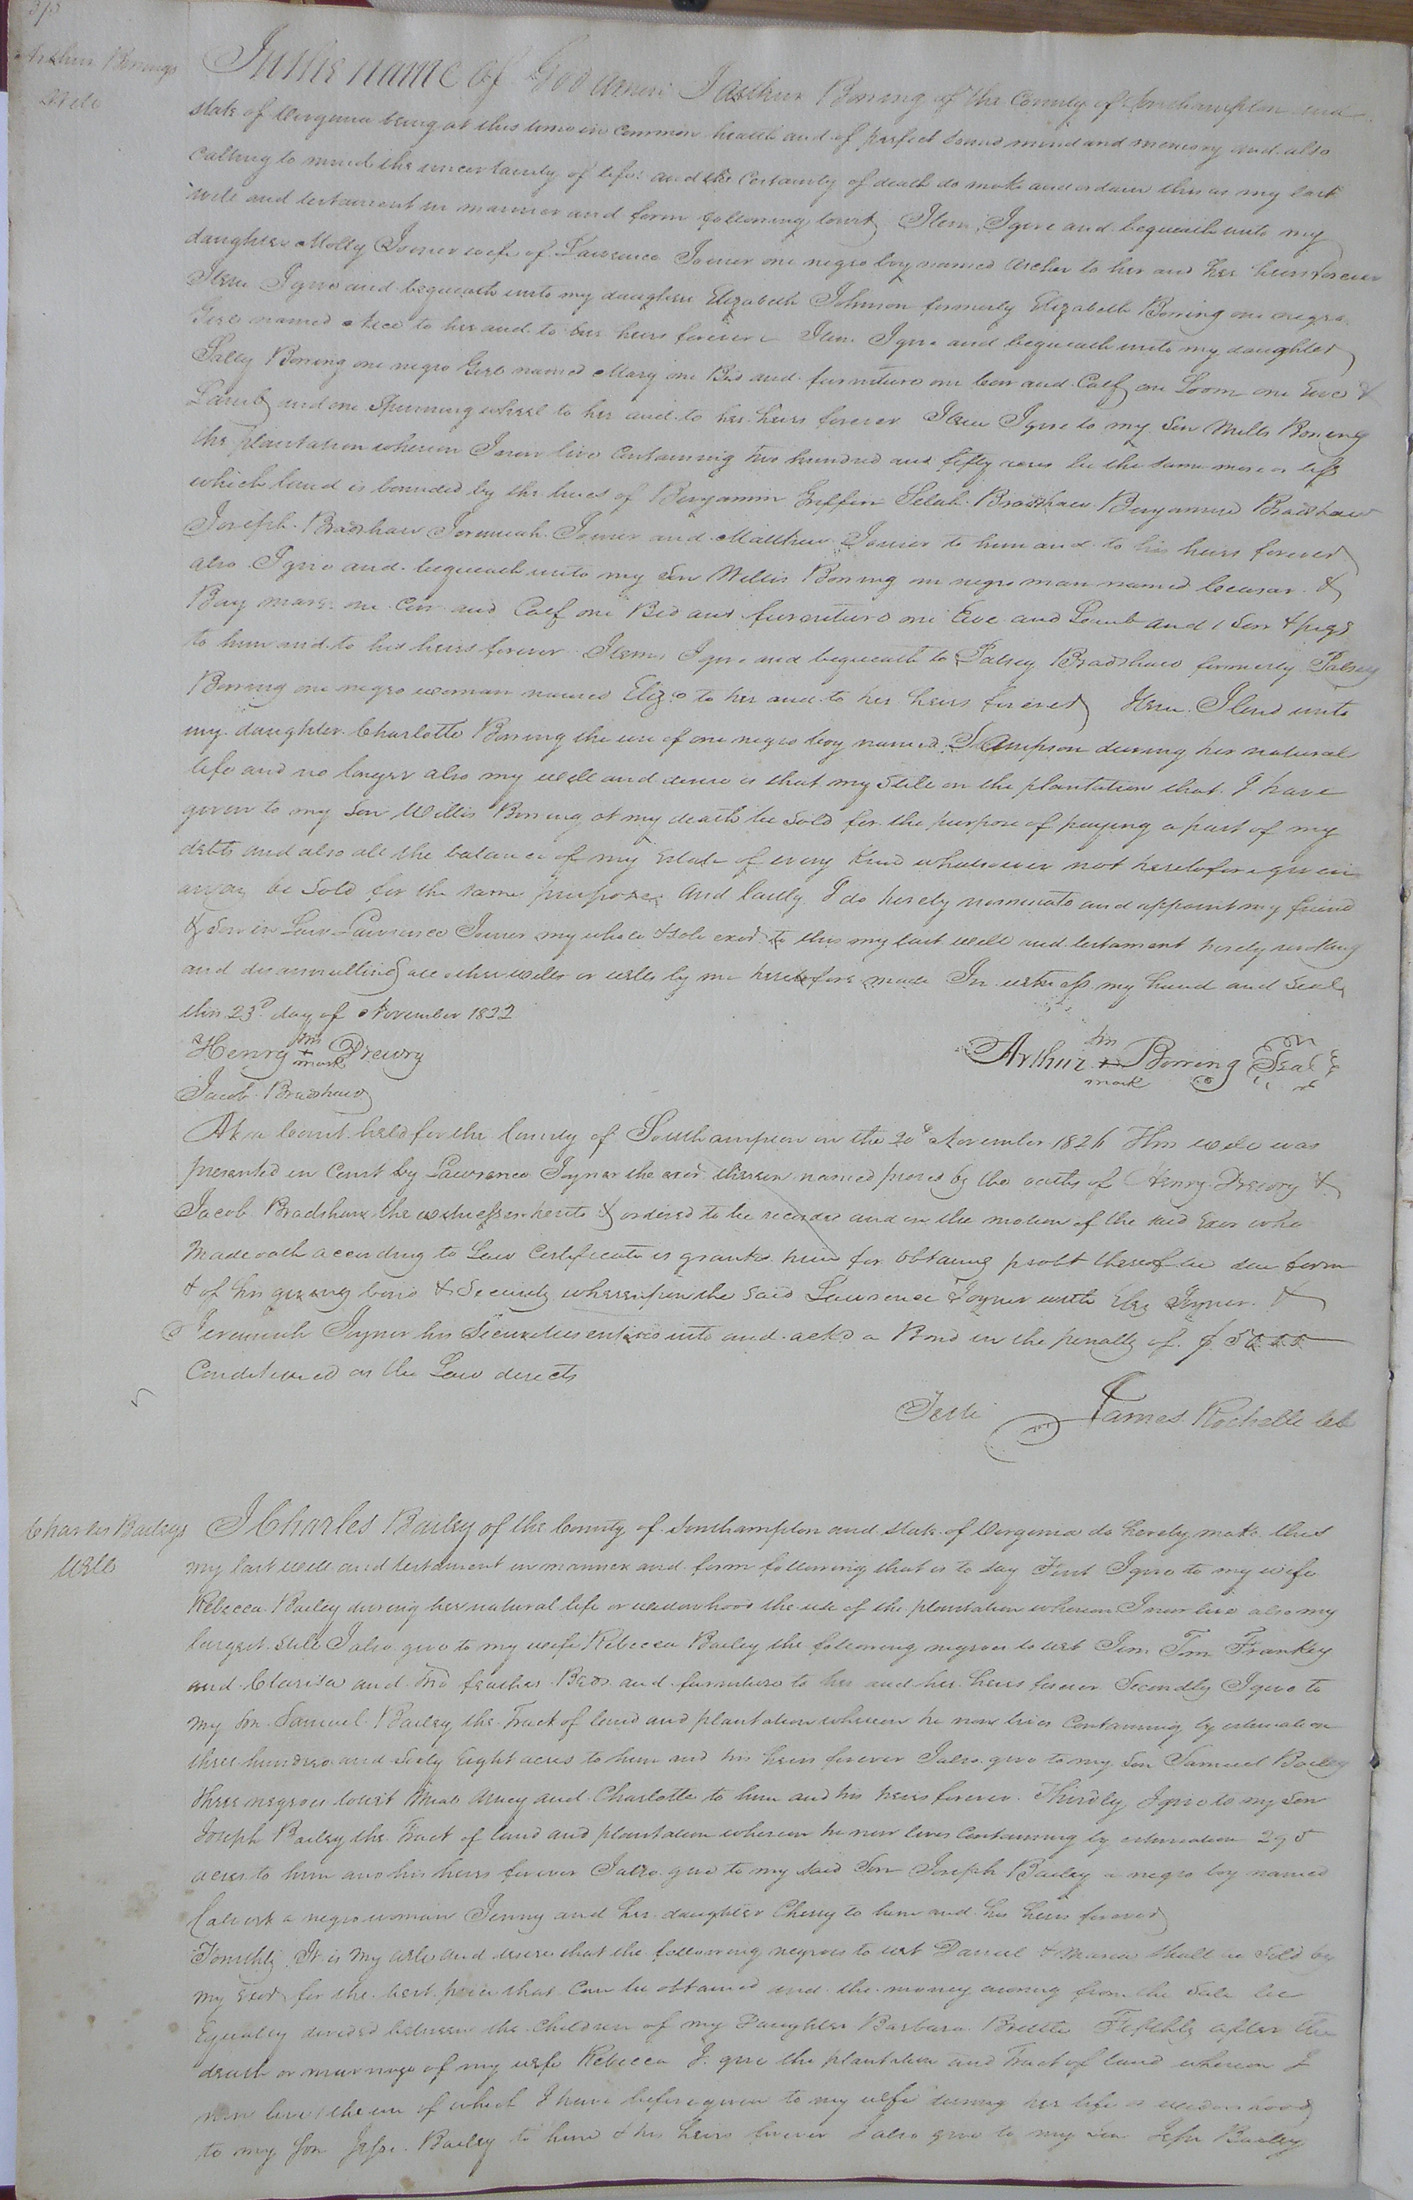 Arthur Boring's
Will
In the name of God amen I Arthur Boring of the County of Southampton and
state of Virginia being at this time in common health and of perfect sound mind and memory and also
calling to mind the uncertainty of life and the certainty of death do make and ordain this as my last
will and testament in manner and form following towit Item I give and bequeath unto my
daughter Molly Joiner wife of Lawrence Joiner one negro boy named Archer to her and her heirs forever
Item I give and bequeath unto my daughter Elizabeth Johnson formerly Elizabeth Boring one negro
Girl named to her and to her heirs forever Item I give and bequeath unto my daughter
Sally Boring one negro Girl named Mary one Bed and furniture one Cow and Calf one Loom one Ewe &
Lamb and one Spinning wheel to her and to her heirs forever Item I give to my Son Willis Boring
the plantation whereon I now live containing two hundred and fifty acres be the same more or less
which land is bounded by the lines of Benjamin Griffin Selah Bradshaw Benjamin Bradshaw
Joseph Bradshaw Jeremiah Joiner and Matthew Joiner to him and to his heirs forever
also I give and bequeath unto my Son Willis Boring one negro man named Ceasar &
Bay mare one Cow and Calf one Bed and furniture one Ewe and Lamb and 1 Sow & pigs
to him and to his heirs forever Item I give and bequeath to Patsey Bradshaw formerly Patsey
Boring one negro woman named Eliza to her and to her heirs forever Item I lend unto
my daughter Charlotte Boring the use of one negro boy named Sampson during her natural
life and no longer also my will and desire is that my Still on the plantation that I have
given to my Son Willis Boring at my death be Sold for the purpose of paying a part of my
debts and also all the balance of my Estate of every kind whatsoever not heretofore given
away be Sold for the same purpose And lastly I do hereby nominate and appoint my friend
& Son in Law Lawrence Joiner my whole & Sole exor to this my last will and testament hereby revoking
and disannulling all other wills or wills by me heretofore made In witness my hand and Seal
this 23d day of November 1822
Henry his + mark Drewry
Arthur his + mark Boring Seal
Jacob Bradshaw
At a Court held for the County of Southampton on the 20th November 1826 This will was
presented in Court by Lawrence Joyner the exor therein named proved by the oaths of Henry Drewry &
Jacob Bradshaw the witnesses hereto & ordered to be recorded and on the motion of the said Exor who
made oath according to Law Certificate is granted him for obtaining probt thereof in due form
& of his giving bond & Security whereupon the said Lawrence Joyner with Joyner &
Jeremiah Joyner his Securities entered into and ackd a Bond in the penalty of $
Conditioned as the Law directs
Teste James Rochelle
Charles Baileys
Will
I Charles Bailey of the County of Southampton and State of Virginia do hereby make this
my last will and testament in manner and form following that is to say First I give to my wife
Rebecca Bailey during her natural life or widowhood the use of the plantation whereon I now live also my
largest Still I also give to my wife Rebecca Bailey the following negroes to wit Jim Tom Frankey
and Clarisa and two feather Beds and furniture to her and her heirs forever Secondly I give to
my Son Samuel Bailey the Tract of land and plantation whereon he now lives Containing by estimation
three hundred and Sixty Eight acres to him and his heirs forever I also give to my Son Samuel Bailey
three negroes towit Amey and Charlotte to him and his heirs forever Thirdly I give to my Son
Joseph Bailey the Tract of land and plantation whereon he now lives Containing by estimation 295
acres to him and his heirs forever I also give to my said Son Joseph Bailey a negro boy named
Calvert a negro woman Jenny and her daughter Cherry to him and his heirs forever
Fourthly It is my will and desire that the following negroes to wit Daniel & Maria shall be Sold by
my Exors for the best price that Can be obtained and the money arising from the Sale be
Equally divided between the Children of my Daughter Barbara Fifthly after the
death or marriage of my wife Rebecca I give the plantation and Tract of land whereon I
now live the use of which I have before given to my wife during her life or widowhood
to my Son Jesse Bailey to him & his heirs forever I also give to my Son Jesse Bailey